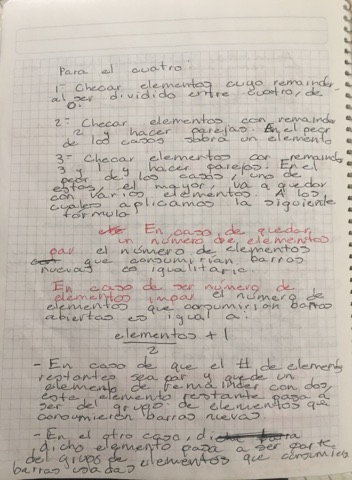 Para el cuatro:
1- Checar elementos cuyo remainder
al ser dividido entre cuatro, de
0.
2- Checar elementos con remainder
2 y hacer parejas. En el peor
de los casos sobra un elemento
3- Checar elementos con remainder
3 y 1 y hacer parejas. En el
peor de los casos, uno de
estos, el mayor, va a quedar
con varios elementos. A los
cuales aplicamos la siguiente
formula
En caso de quedar
un número de elementos
par el número de elementos
que consumirían barras
nuevas es igualitario.
En caso de ser número de
elementos impar el número de
elementos que consumirían barras
abiertas es igual a:
elementos + 1
2
- En caso de que el # de elementos
restantes sea par y quede un
elemento de remainder con dos,
este elemento restante pasa a
ser del grupo de elementos que
consumieron barras nuevas
- En el otro caso,
dicho elemento pasa a ser parte
del grupo de elementos que consumieron
barras usadas